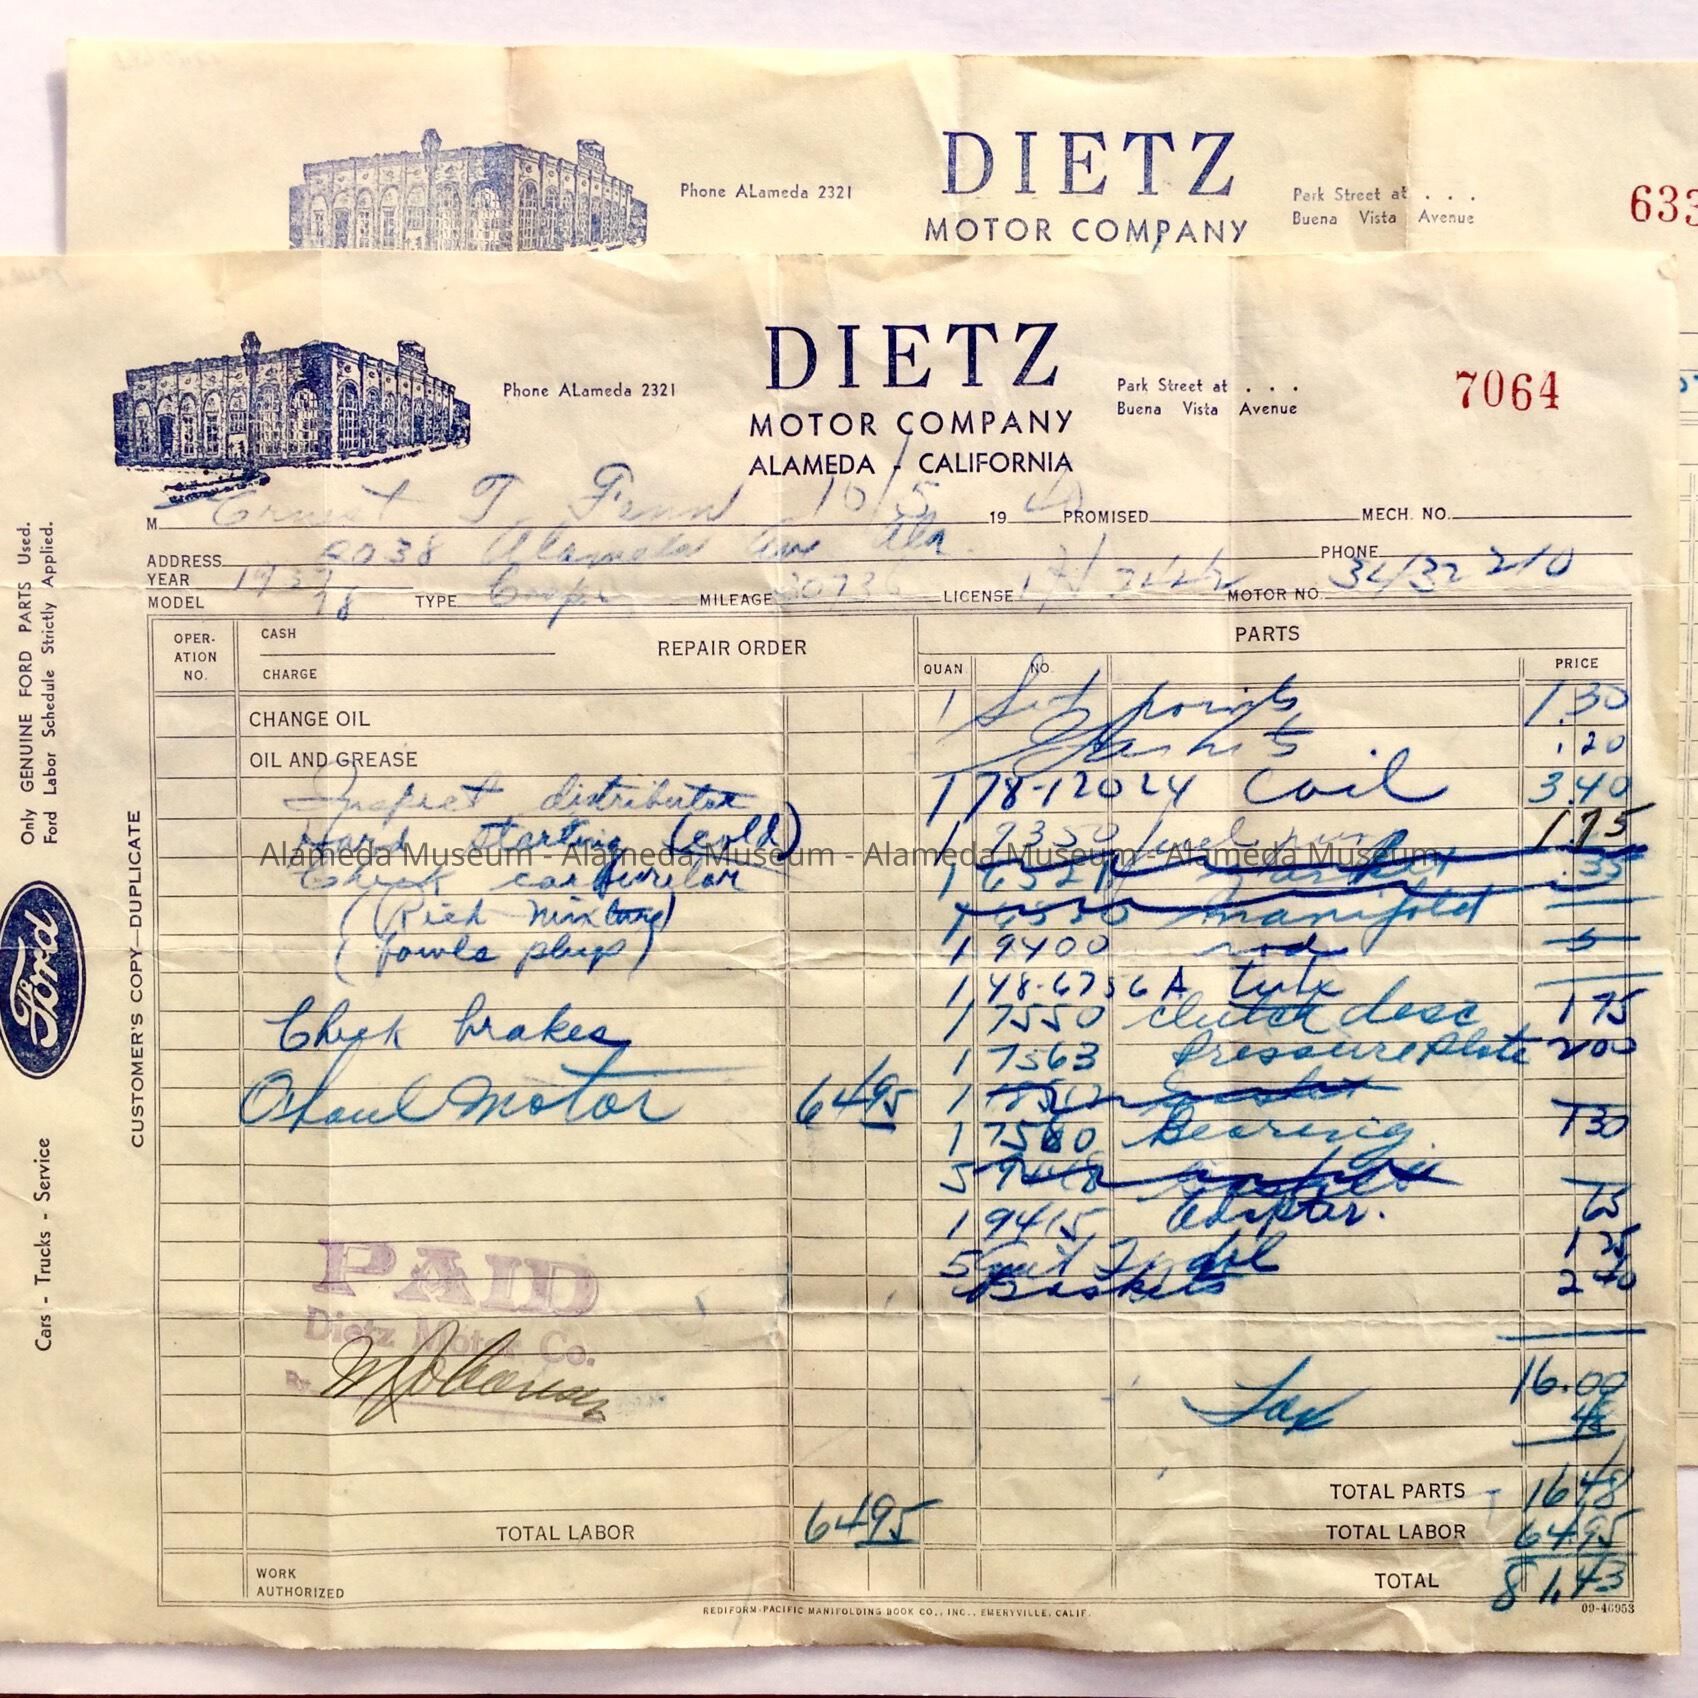 DIETZ
MOTOR COMPANY
Phone ALameda 2321
Park Street at . . .
Buena Vista Avenue
633
DIETZ
MOTOR COMPANY
ALAMEDA - CALIFORNIA
Phone ALameda 2321
Park Street at . . .
Buena Vista Avenue
7064
M Ernest T. Fenn 10/5 19 PROMISED MECH. NO.
ADDRESS 2038 Alameda Ave Ala. PHONE
YEAR 1937
MODEL 78 TYPE Coupe MILEAGE 30736 LICENSE MOTOR NO.
OPER-
ATION
NO.
CASH
CHARGE
REPAIR ORDER
PARTS
QUAN NO. PRICE
CHANGE OIL
OIL AND GREASE
Inspect distributor
Hard starting (cold)
Check carburetor
(Rich mixture)
(fowls plugs)
Check brakes
Ohaul Motor 64 95
1 Set points 1.30
Gaskets .20
1 78-12024 Coil 3.40
1 9350 fuel pump 1 75
gasket .35
manifold
1 9400 rod
1 48-6756A tube
1 7550 clutch desc 1 75
1 7563 Pressure Plate 2 00
1 7580 Bearing. 1 30
1 9415 adapter. 65
5 oil 1 25
Gaskets 2 40
16.00
Tax 48
TOTAL PARTS 16 48
TOTAL LABOR 64 95 TOTAL LABOR 64.95
TOTAL 81.43
WORK
AUTHORIZED
REDIFORM-PACIFIC MANIFOLDING BOOK CO., INC., EMERYVILLE, CALIF.
09-46953
PAID
Dietz Motor Co.
By
CUSTOMER'S COPY—DUPLICATE
Only GENUINE FORD PARTS Used.
Ford Labor Schedule Strictly Applied.
Ford
Cars - Trucks - Service
Alameda Museum - Alameda Museum - Alameda Museum - Alameda Museum